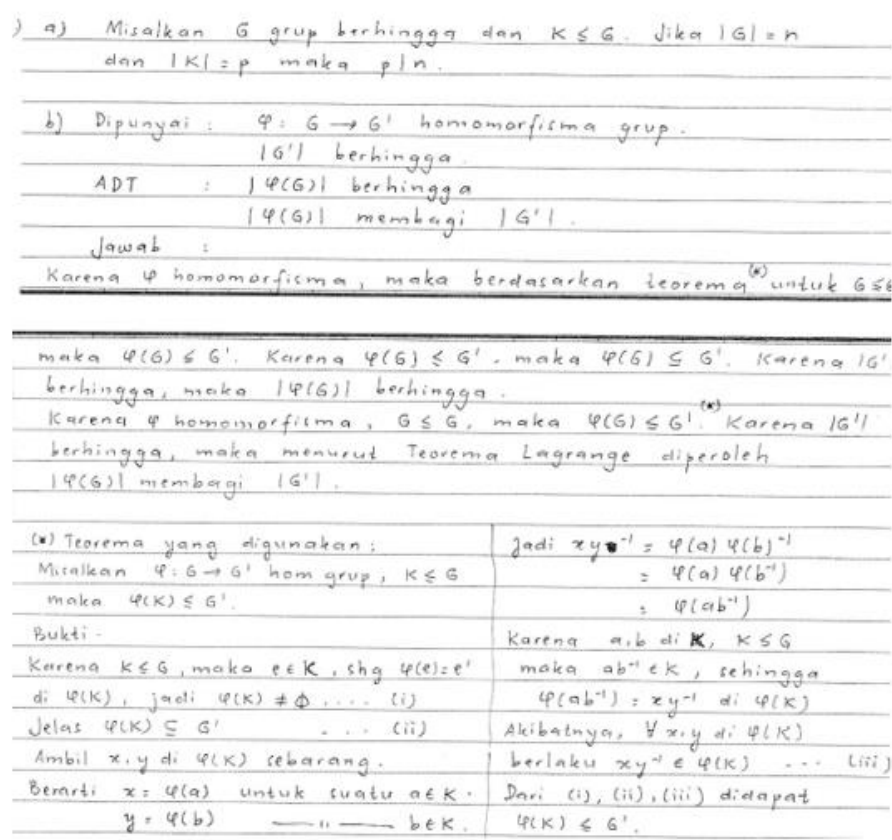 ) a) Misalkan G grup berhingga dan K ≤ G. Jika |G| = n
dan |K| = p maka p|n.
b) Dipunyai : φ : G → G' homomorfisma grup.
|G'| berhingga.
ADT : |φ(G)| berhingga
|φ(G)| membagi |G'|.
Jawab :
Karena φ homomorfisma, maka berdasarkan teorema (*) untuk G ≤ G
maka φ(G) ≤ G'. Karena φ(G) ≤ G', maka φ(G) ⊆ G'. Karena |G'
berhingga, maka |φ(G)| berhingga.
Karena φ homomorfisma, G ≤ G, maka φ(G) ≤ G'. (*) Karena |G'|
berhingga, maka menurut Teorema Lagrange diperoleh
|φ(G)| membagi |G'|.
(*) Teorema yang digunakan :
Misalkan φ : G → G' hom grup, K ≤ G
maka φ(K) ≤ G'.
Bukti -
Karena K ≤ G, maka e ∈ K, shg φ(e) = e'
di φ(K), jadi φ(K) ≠ ∅ .... (i)
Jelas φ(K) ⊆ G' ... (ii)
Ambil x, y di φ(K) sebarang.
Berarti x = φ(a) untuk suatu a ∈ K.
y = φ(b) —— 〃 —— b ∈ K.
Jadi xy⁻¹ = φ(a) φ(b)⁻¹
= φ(a) φ(b⁻¹)
= φ(ab⁻¹)
Karena a, b di K, K ≤ G
maka ab⁻¹ ∈ K, sehingga
φ(ab⁻¹) = xy⁻¹ di φ(K)
Akibatnya, ∀ x, y di φ(K)
berlaku xy⁻¹ ∈ φ(K) ... (iii)
Dari (i), (ii), (iii) didapat
φ(K) ≤ G'.